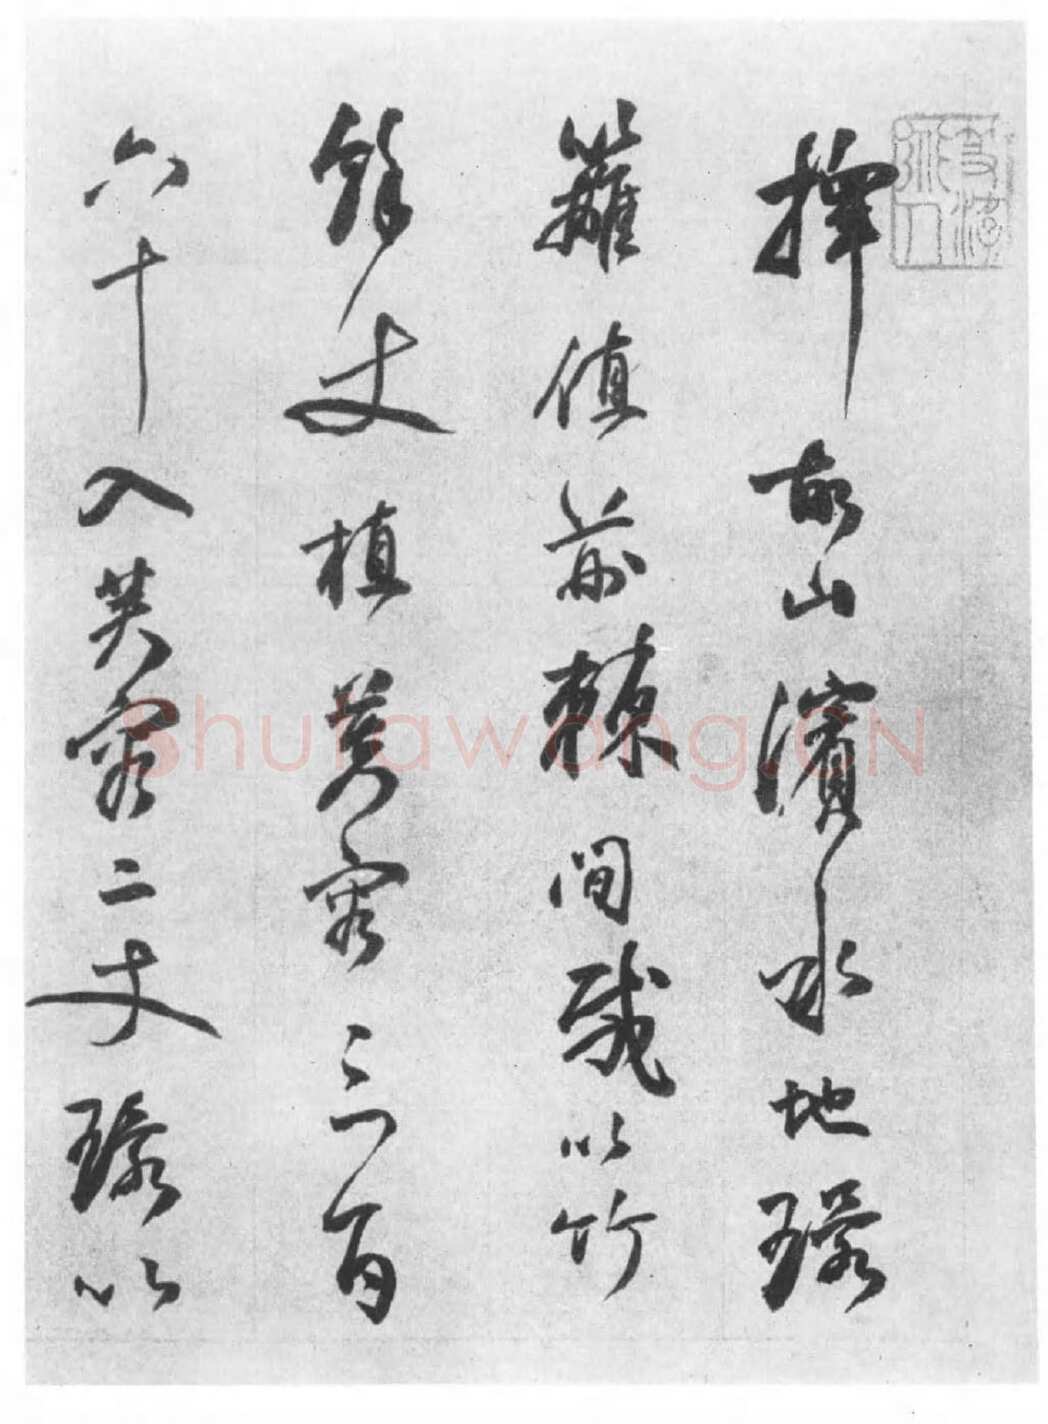 擇故山濱水地環
籬植荊棘間栽以竹
餘丈植芙容三百
六十入芙容二丈環以
Shufawang.CN